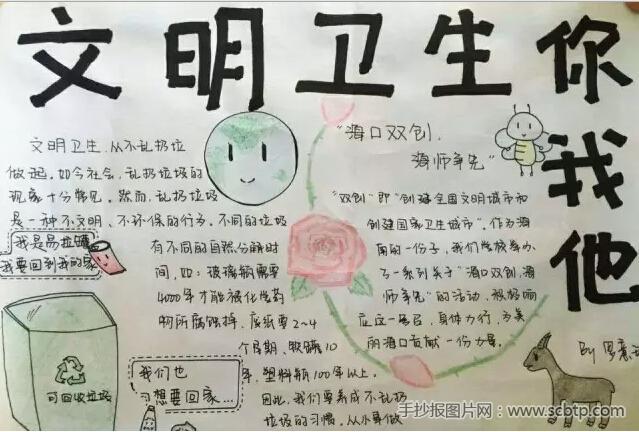 文明卫生你我他
文明卫生,从不乱扔垃
做起,如今社会,乱扔垃圾的
现象十分常见。然而,乱扔垃圾
是一种不文明、不环保的行为。不同的垃圾
有不同的自然分解时
间,如:玻璃瓶需要
4000年才能被化学药
物所腐蚀掉,废纸要2~4
个月期,软罐10
年,塑料瓶100年以上。
因此,我们要养成不乱扔
垃圾的习惯,从小事做
我是易拉罐
我要回到我的家
可回收垃圾
我们也
想要回家...
"海口双创,
海师争先"
"双创"即"创建全国文明城市和
创建国家卫生城市"。作为海
南的一份子,我们学校举办
了一系列关于"海口双创,海
师争先"的活动,积极响
应这一号召,身体力行,为美
丽海口贡献一份力量。
By 罗意
手抄报图片网:www.scbtp.com